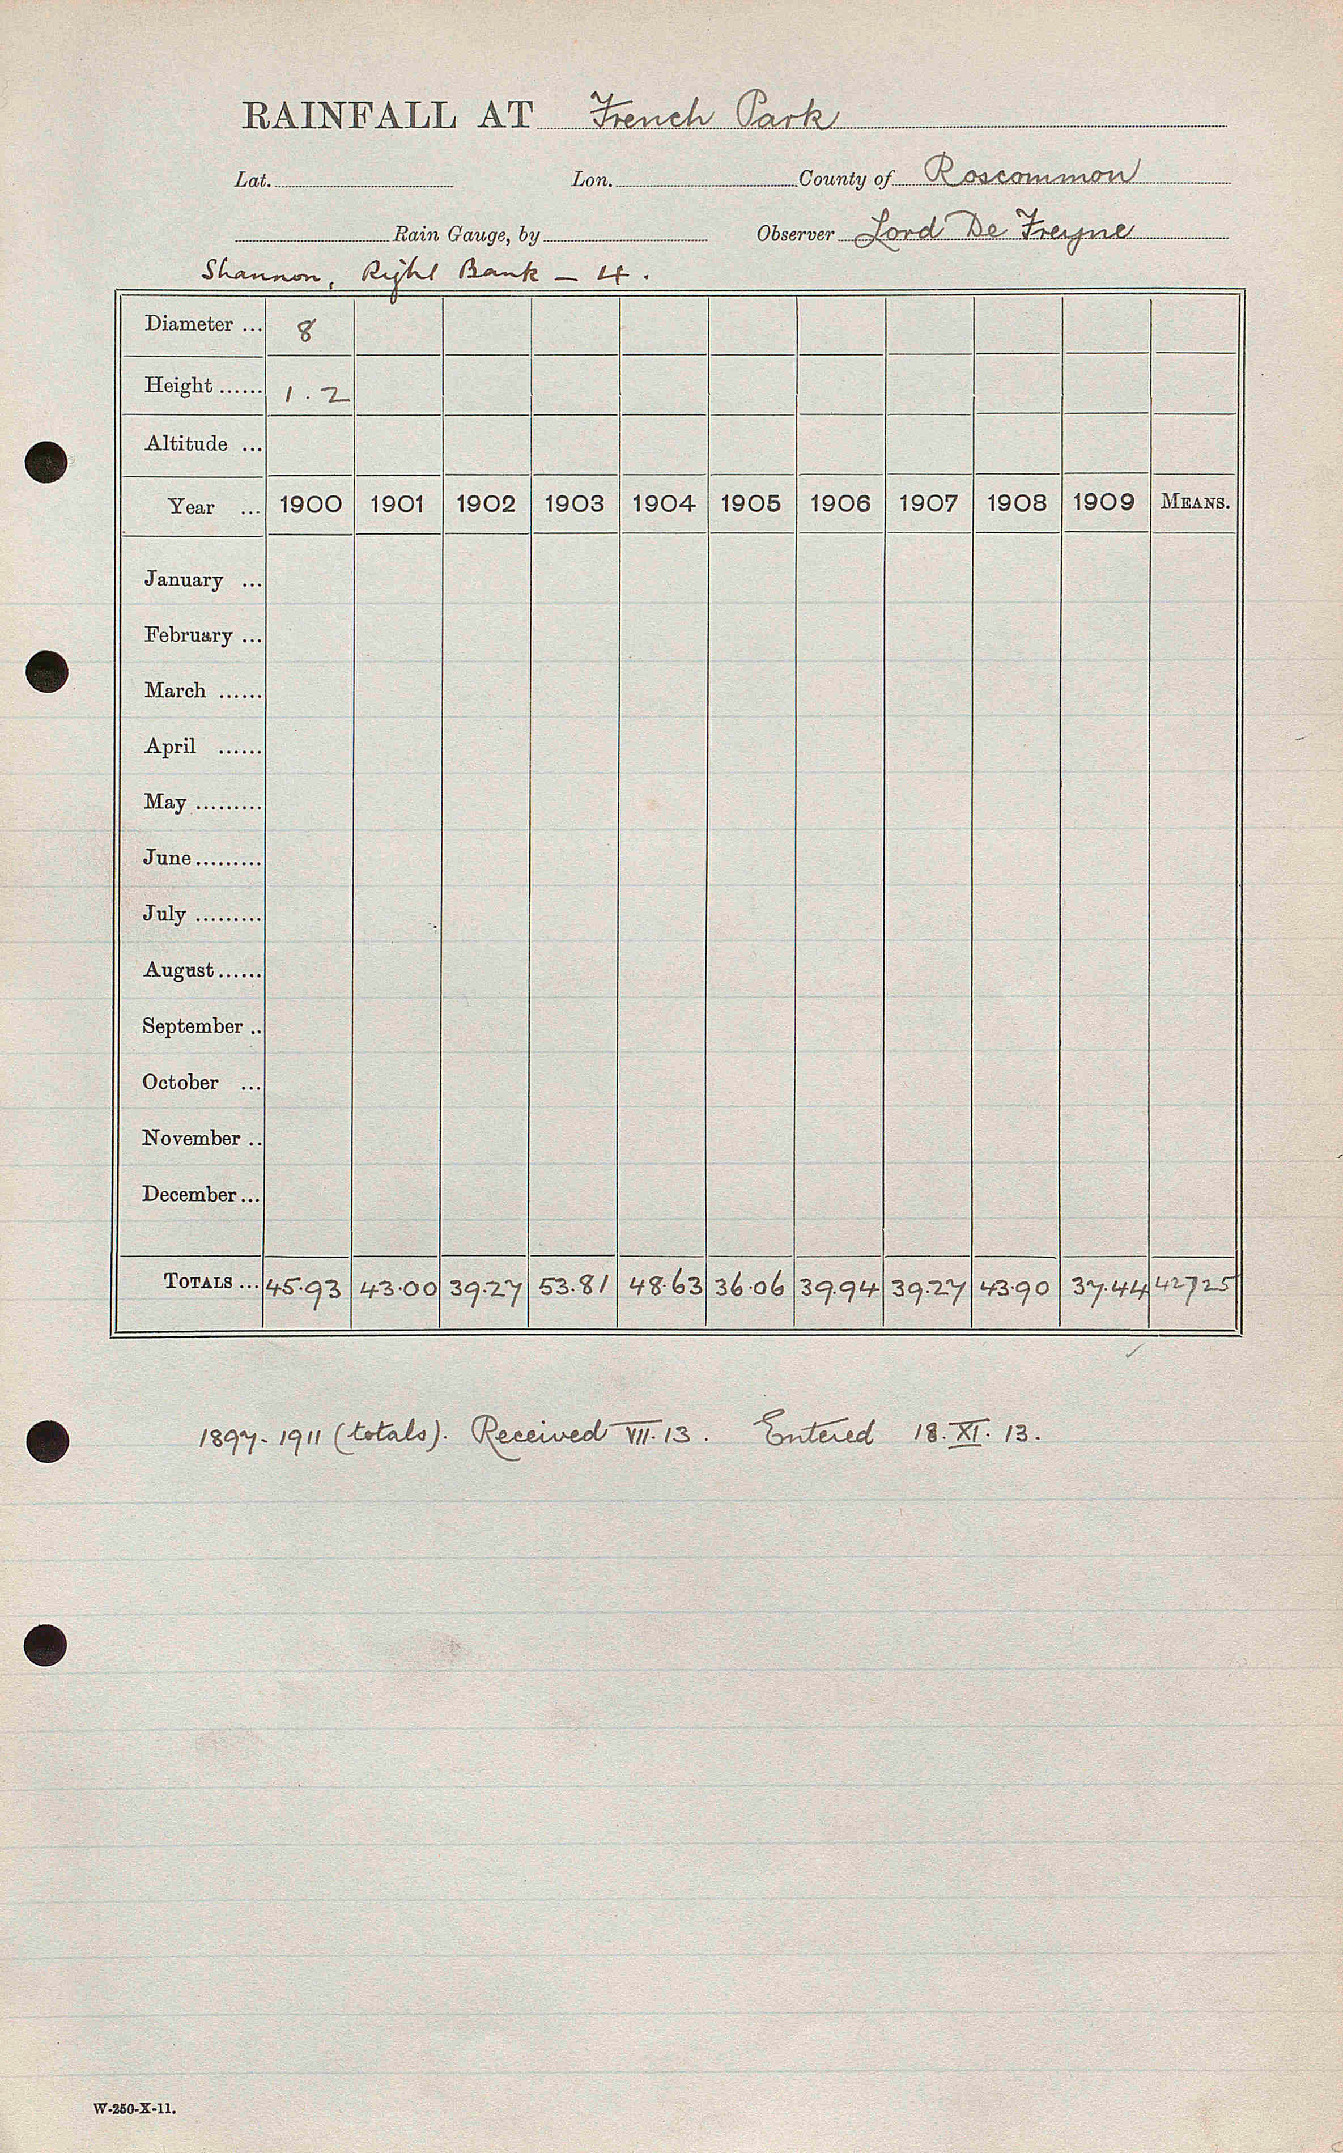 RAINFALL AT French Park
Lat. Lon. County of Roscommon
Rain Gauge, by Observer Lord De Freyne
Shannon, Right Bank – 4.
Diameter ... 8
Height ...... 1.2
Altitude ...
Year ... 1900 1901 1902 1903 1904 1905 1906 1907 1908 1909 MEANS.
January ...
February ...
March ......
April ......
May .........
June .........
July .........
August ......
September ..
October ...
November ..
December ...
TOTALS ... 45.93 43.00 39.27 53.81 48.63 36.06 39.94 39.27 43.90 37.44 42725
1897-1911 (totals). Received VII.13. Entered 18.XI.13.
W-250-X-11.